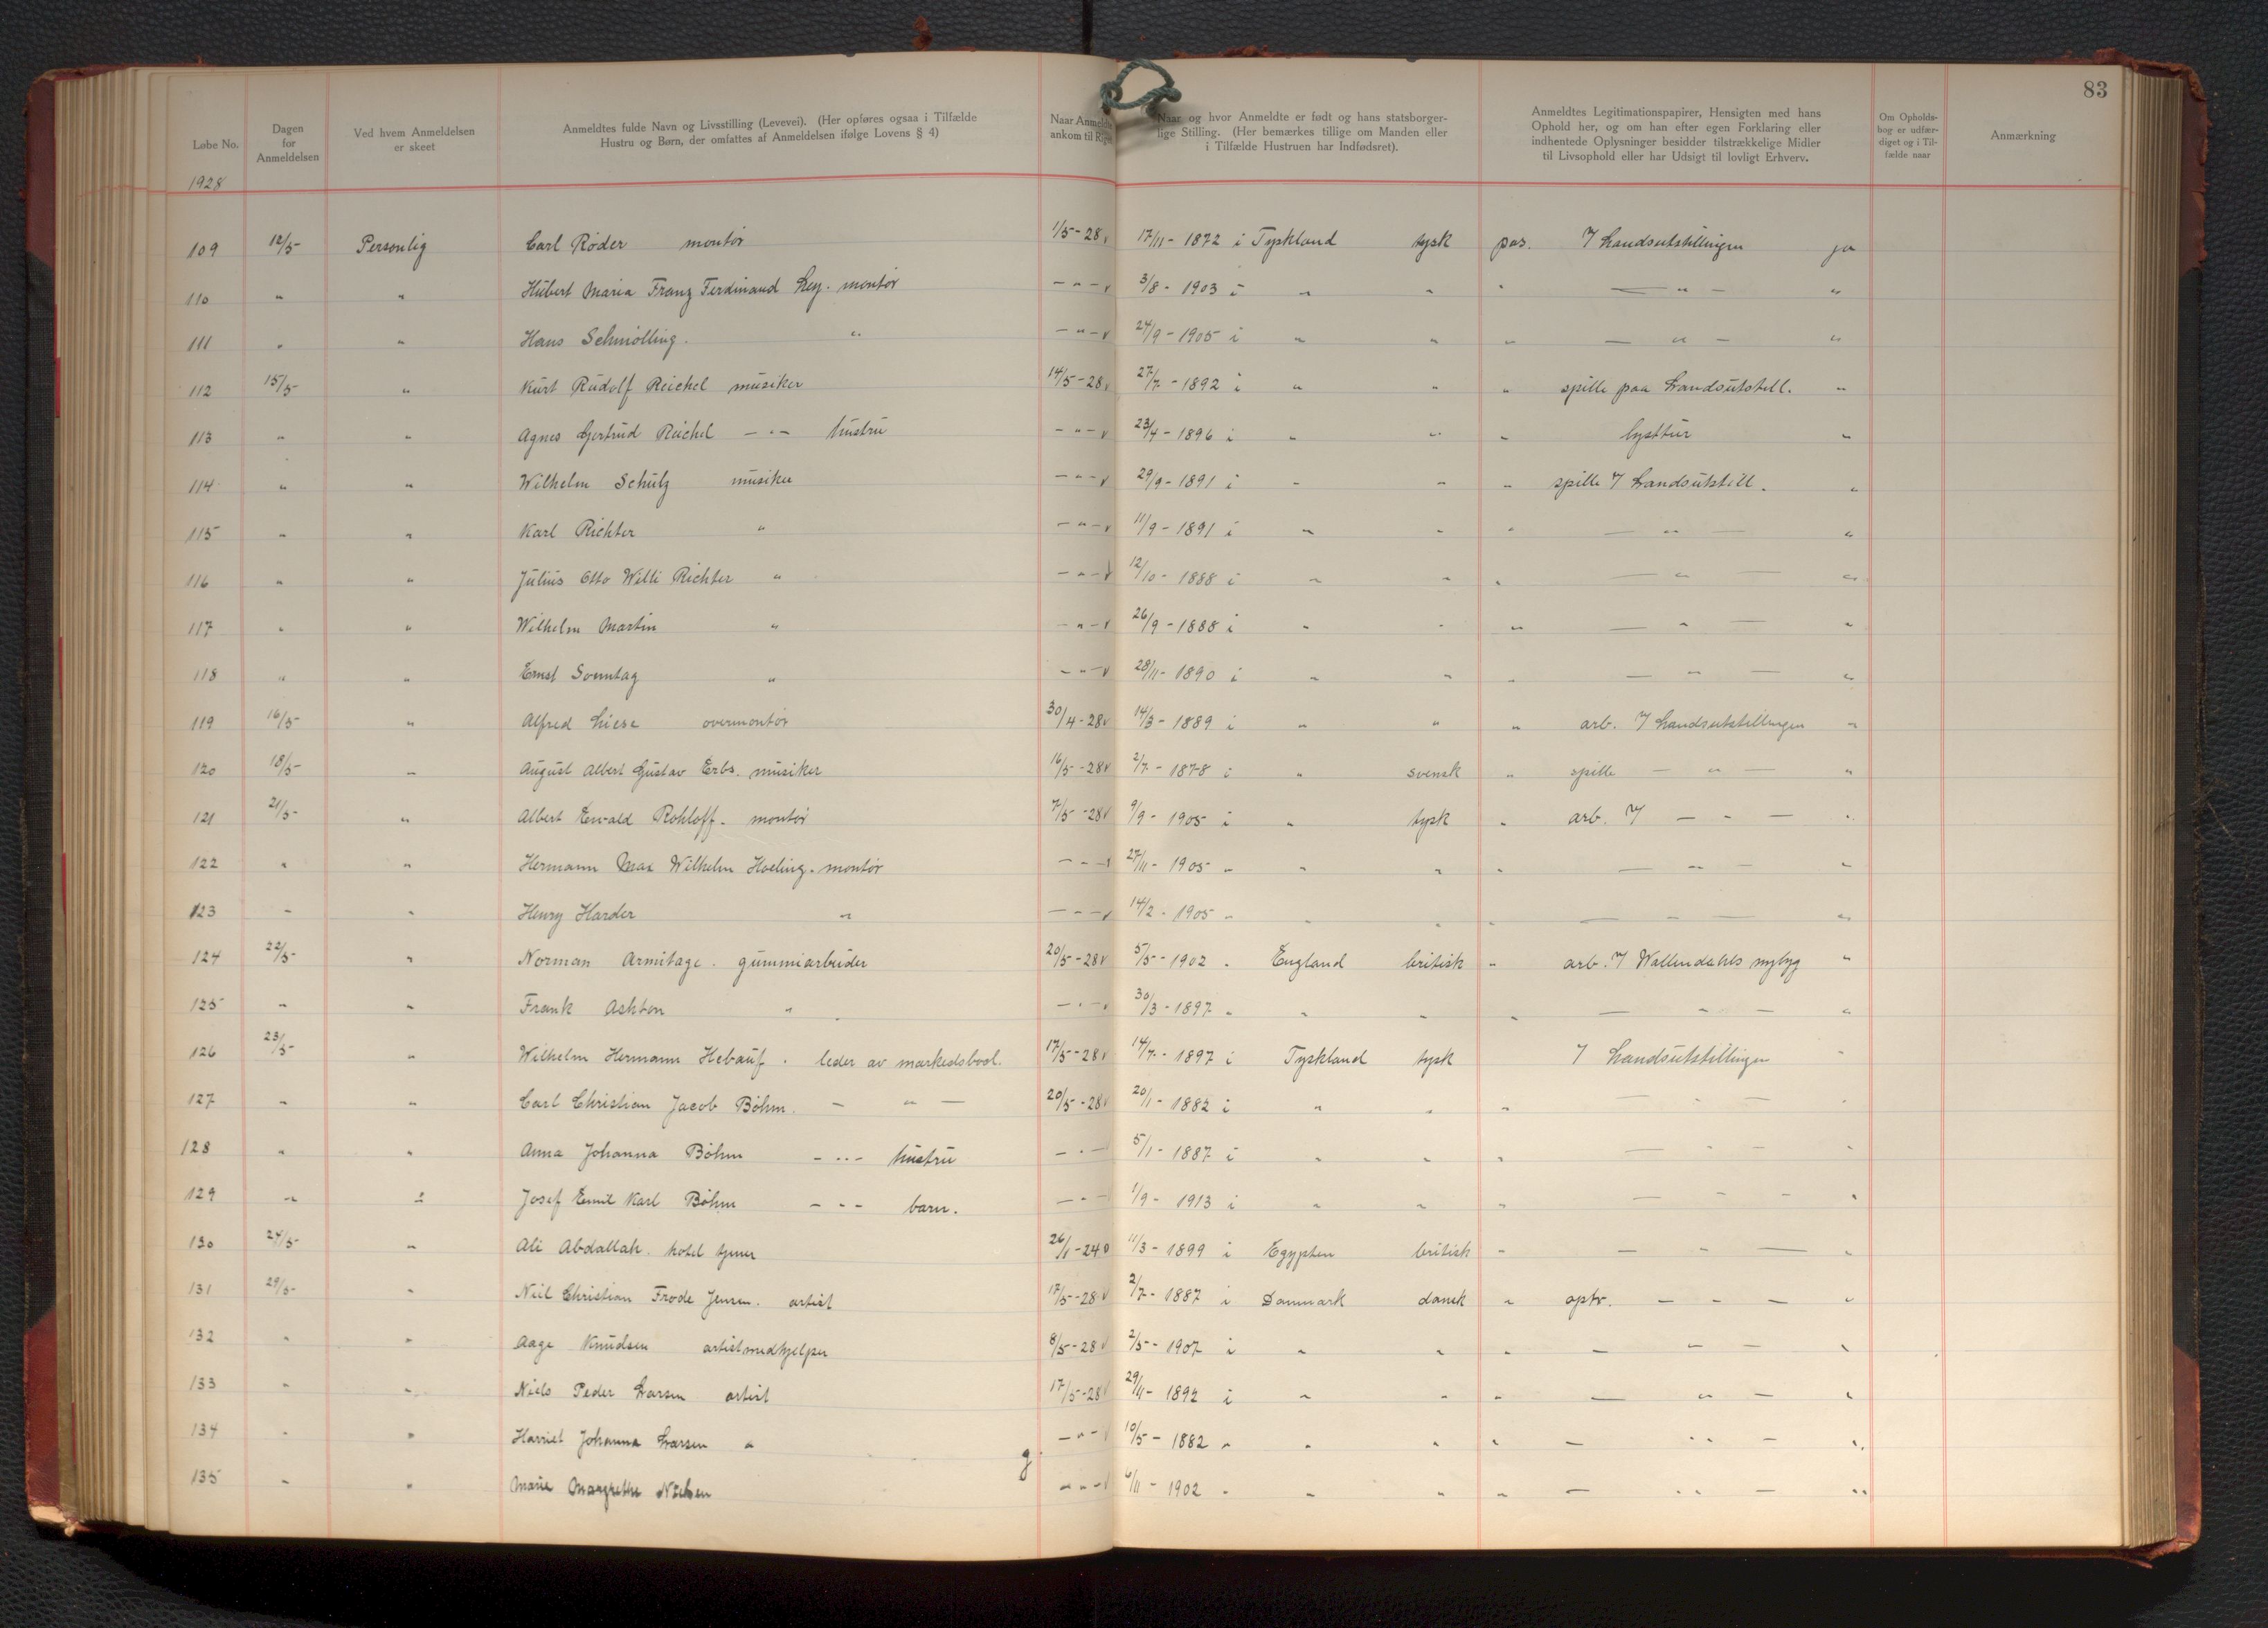 83
Løbe No.
Dagen for Anmeldelsen
Ved hvem Anmeldelsen er skeet
Anmeldtes fulde Navn og Livsstilling (Levevei). (Her opføres ogsaa i Tilfælde Hustru og Børn, der omfattes af Anmeldelsen ifølge Lovens § 4)
Naar Anmeldte ankom til Riget
Naar og hvor Anmeldte er født og hans statsborgerlige Stilling. (Her bemærkes tillige om Manden eller i Tilfælde Hustruen har Indfødsret).
Anmeldtes Legitimationspapirer, Hensigten med hans Ophold her, og om han efter egen Forklaring eller indhentede Oplysninger besidder tilstrækkelige Midler til Livsophold eller har Udsigt til lovligt Erhverv.
Om Opholdsbog er udfærdiget og i Tilfælde naar
Anmærkning
1928
109 12/5- Personlig Carl Røder montør 1/5-28 17/11-1872 i Tyskland tysk pas. Landsutstillingen ja
110 " " Hubert Maria Franz Ferdinand Ley. montør -"- 3/8-1903 i " " " -"- "
111 " " Hans Schmölling. " -"- 24/9-1905 i " " " -"- "
112 15/5- " Kurt Rudolf Reichel musiker 14/5-28 27/7-1892 i " " " spille paa Landsutstell. "
113 " " Agnes Gertrud Reichel -"- hustru -"- 23/4-1896 i " " " lysttur "
114 " " Wilhelm Schulz musiker -"- 29/9-1891 i " " " spille Landsutstill. "
115 " " Karl Richter " -"- 11/9-1891 i " " " -"- "
116 " " Julius Otto Willi Richter " -"- 12/10-1888 i " " " -"- "
117 " " Wilhelm Martin " -"- 26/9-1888 i " " " -"- "
118 " " Ernst Sonntag " -"- 28/11-1890 i " " " -"- "
119 16/5- " Alfred Liese overmontør 30/4-28 14/3-1889 i " " " arb. Landsutstillingen "
120 18/5- " August Albert Gustav Erbs. musiker 16/5-28 2/7-1878 i " svensk " spille -"- "
121 21/5- " Albert Ewald Rohloff. montør 7/5-28 9/9-1905 i " tysk " arb. -"- "
122 " " Hermann Max Wilhelm Hoeling. montør -"- 27/11-1905 " " " " -"- "
123 " " Henry Harder " -"- 14/2-1905 " " " " -"- "
124 22/5- " Norman Armitage. gummiarbeider 20/5-28 5/5-1902 " England britisk " arb. Wallendahls nybyg "
125 " " Frank Ashton " -"- 30/3-1897 " " " " -"- "
126 23/5- " Wilhelm Hermann Hebauf. leder av markedsbod. 17/5-28 14/7-1897 i Tyskland tysk Landsutstillingen "
127 " " Carl Christian Jacob Böhm. -"- 20/5-28 20/1-1882 i " " " -"- "
128 " " Anna Johanna Böhm -"- hustru -"- 5/1-1887 i " " " -"- "
129 " " Josef Emil Karl Böhm -"- barn. -"- 1/9-1913 i " " " -"- "
130 24/5- " Ali Abdallah. hotel tjener 26/1-24 11/3-1899 i Egypten britisk " -"- "
131 29/5- " Niil Christian Frode Jensen. artist 17/5-28 2/7-1887 i Danmark dansk " optr. -"- "
132 " " Aage Knudsen artistmedhjelper 8/5-28 2/5-1907 i " " " -"- "
133 " " Niels Peder Larsen artist 17/5-28 1892 i " " " -"- "
134 " " Harriet Johanna Larsen " -"- 10/5-1882 " " " " -"- "
135 " " Marie Margrethe Nielsen -"- 6/11-1902 " " " " -"- "
g